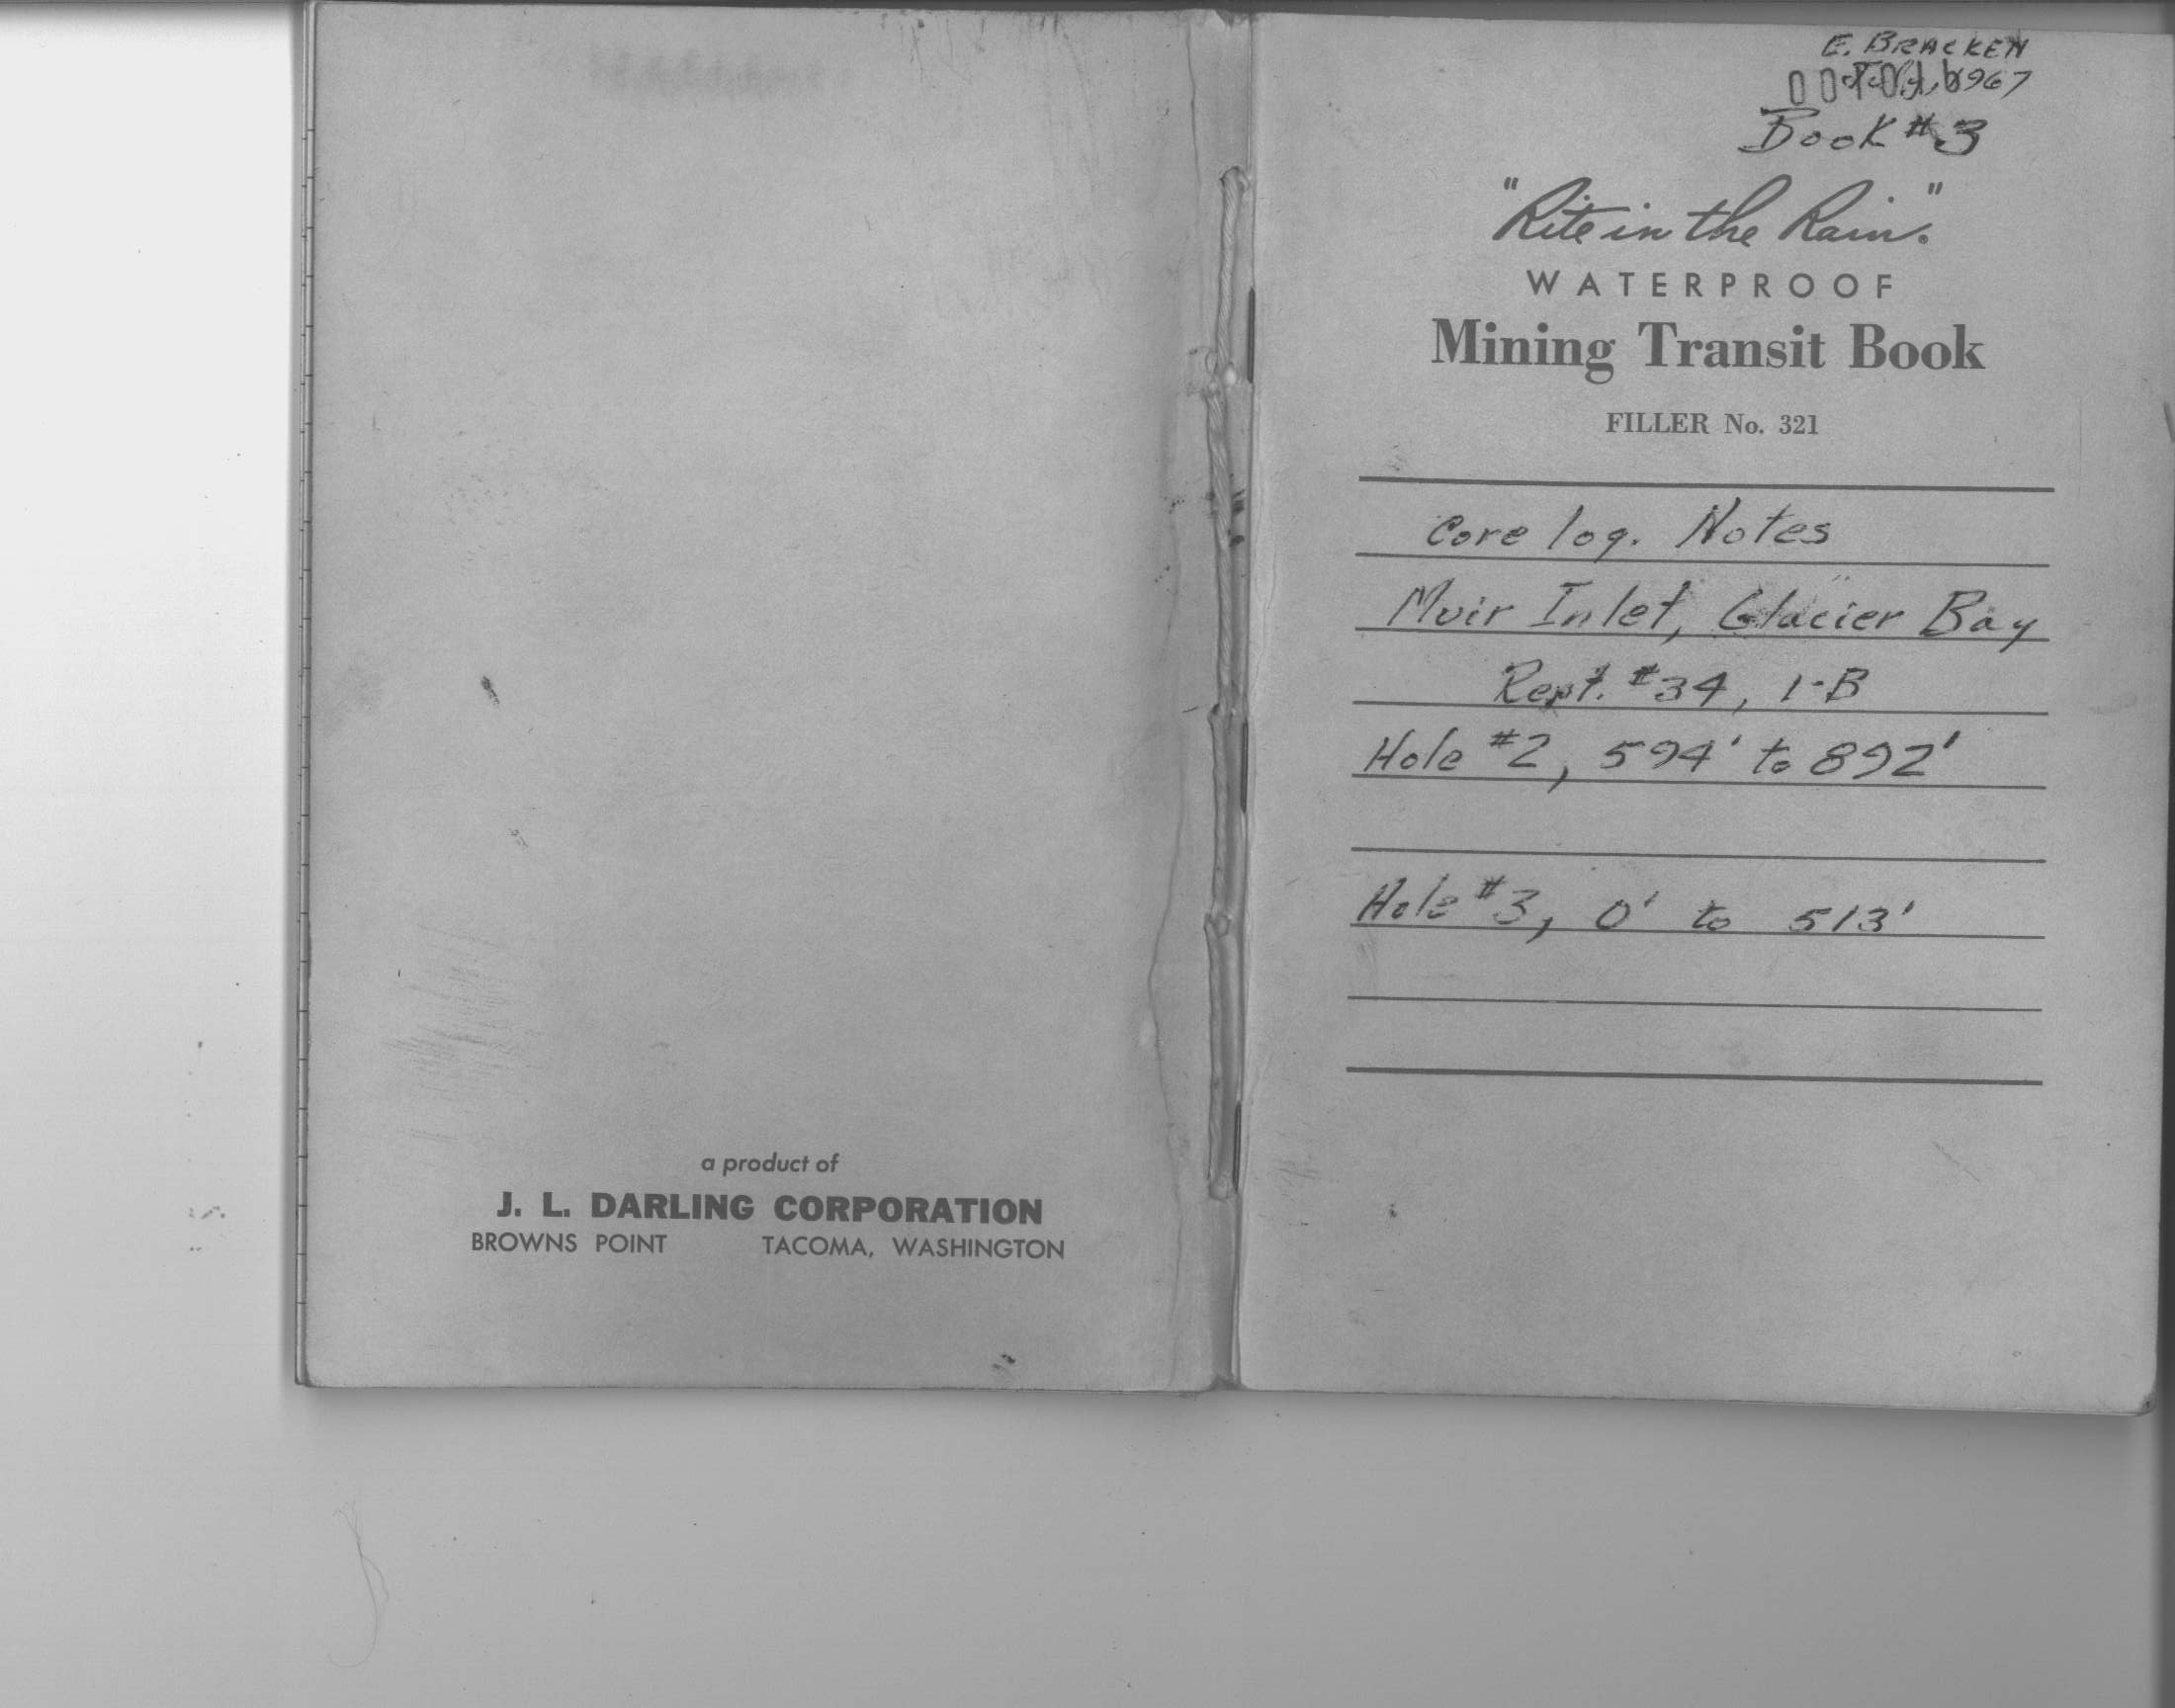 a product of
J. L. DARLING CORPORATION
BROWNS POINT TACOMA, WASHINGTON
E. BRACKEN
1967
Book #3
"Rite in the Rain"
WATERPROOF
Mining Transit Book
FILLER No. 321
Core log. Notes
Muir Inlet, Glacier Bay
Rept. #34, 1-B
Hole #2, 594' to 892'
Hole #3, 0' to 513'